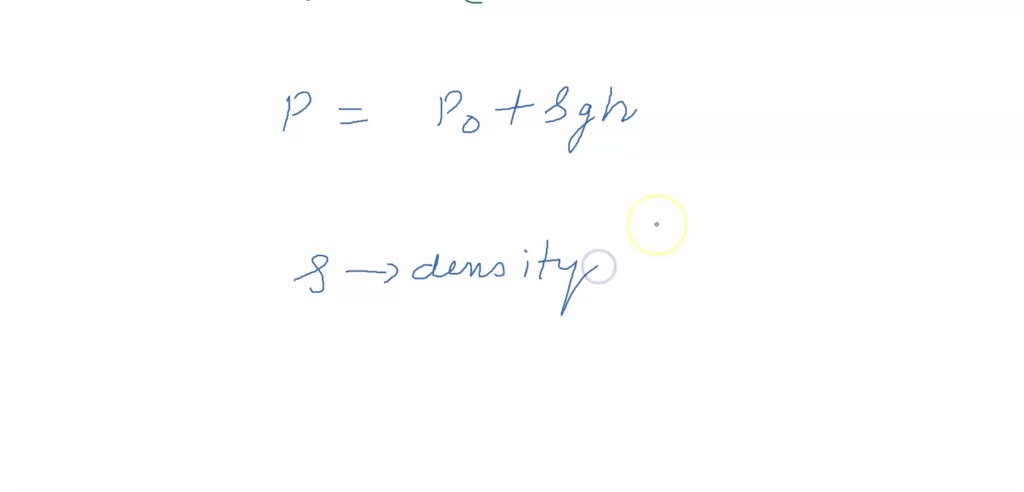 P = P₀ + ρgh
ρ → density